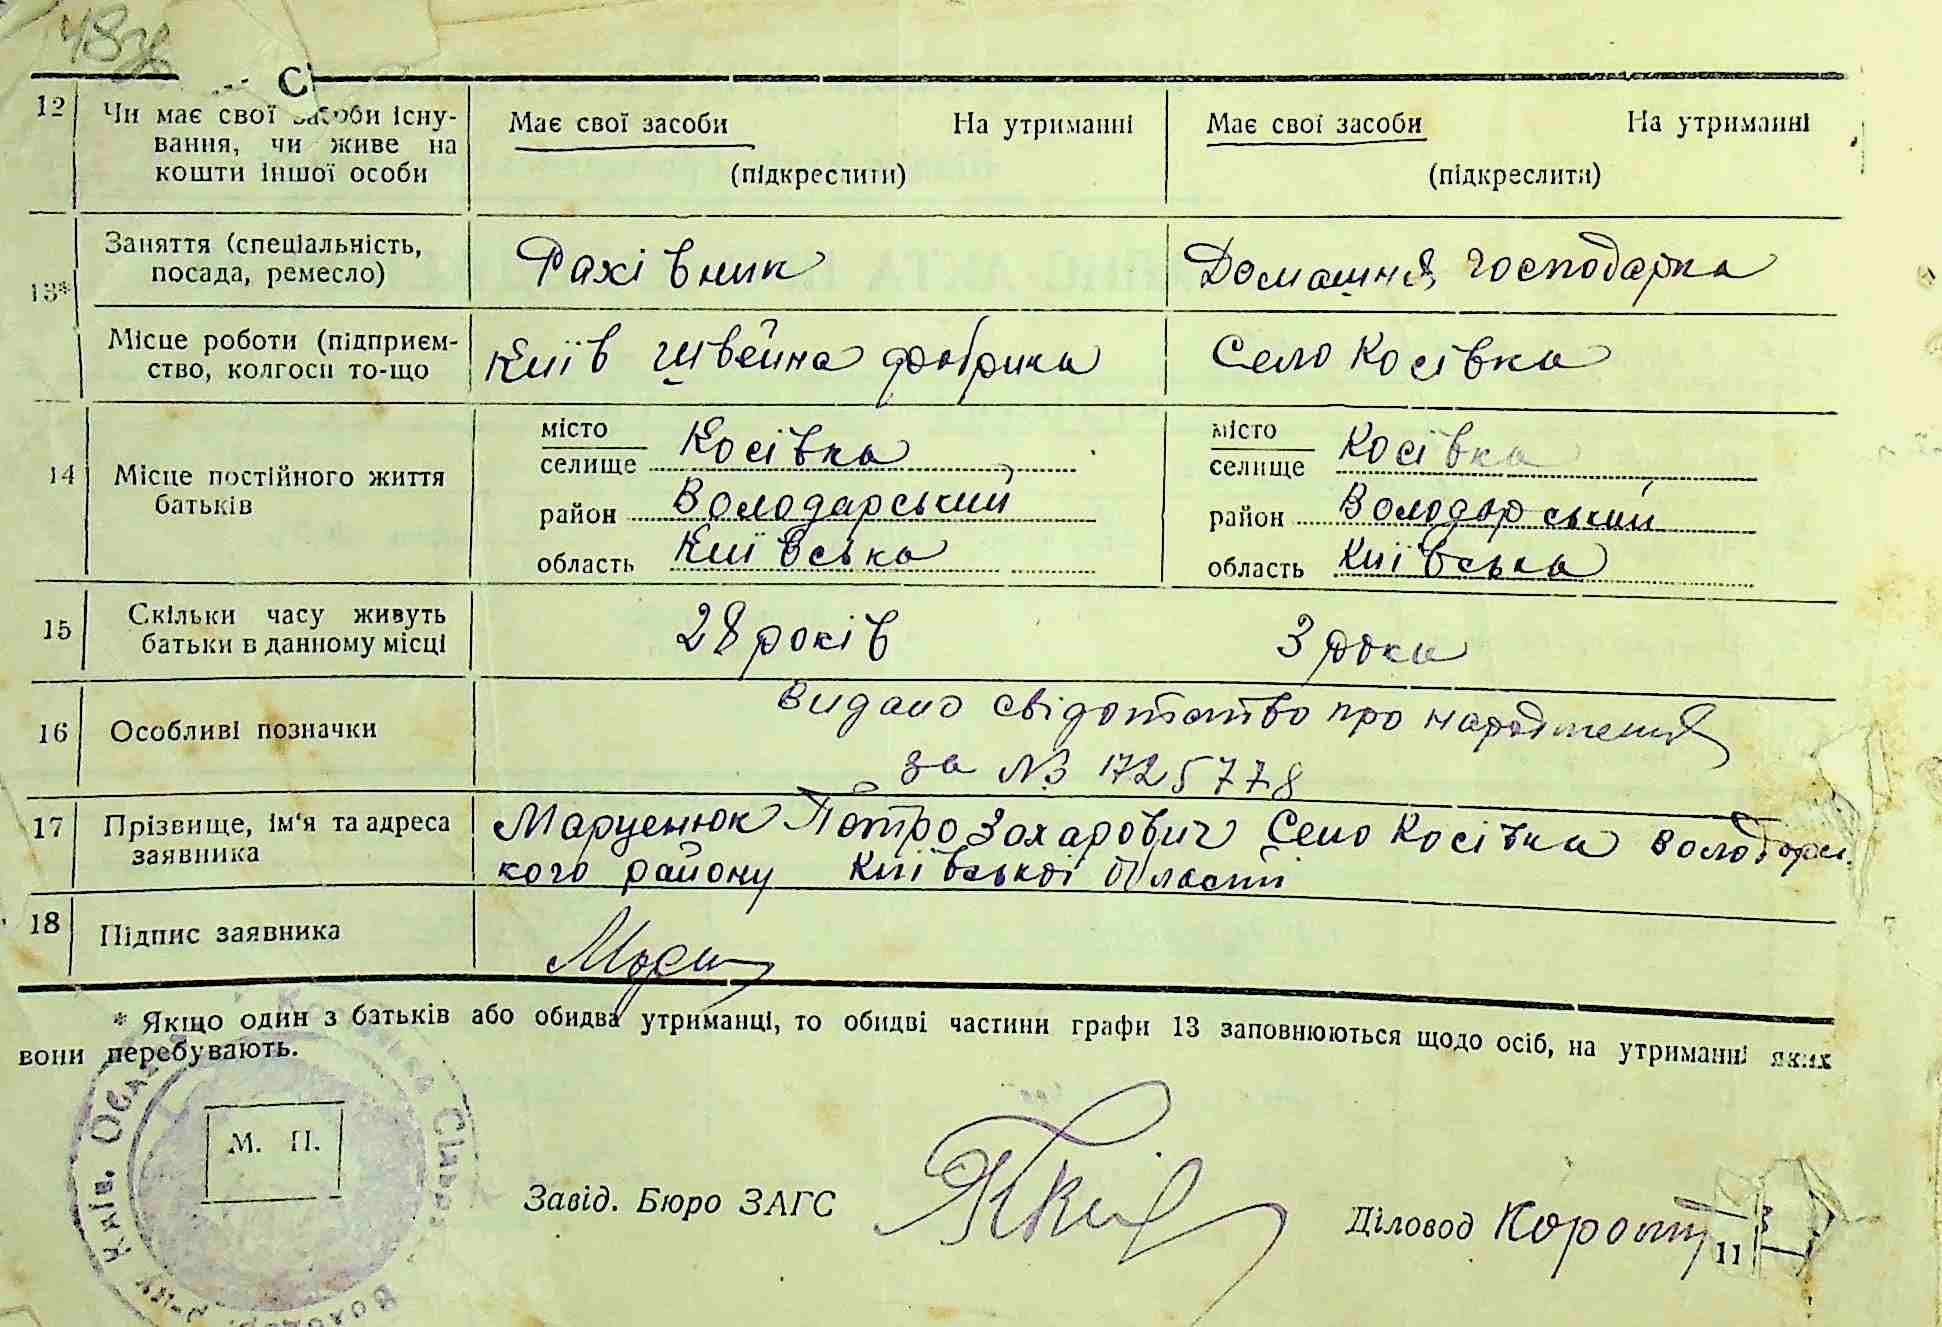 48
С
12 Чи має свої засоби існу- Має свої засоби На утриманні Має свої засоби На утриманні
вання, чи живе на
кошти іншої особи (підкреслити) (підкреслити)
Заняття (спеціальність, Рахівник Домашня господарка
посада, ремесло)
13*
Місце роботи (підприєм- Київ швейна фабрика Село Косівка
ство, колгосп то-що
місто місто
14 Місце постійного життя селище Косівка селище Косівка
батьків район Володарський район Володарський
область Київська область Київська
15 Скільки часу живуть 28 років 3 роки
батьки в данному місці
16 Особливі позначки Видано свідотство про народження
за № 1725778
17 Прізвище, ім'я та адреса Марценюк Петро Захарович Село Косівка Володарсь
заявника кого району Київської області
18 Підпис заявника
* Якщо один з батьків або обидва утриманці, то обидві частини графи 13 заповнюються щодо осіб, на утриманні яких
вони перебувають.
М. П.
Київ. Обл. Косівська Сільр
Завід. Бюро ЗАГС Діловод
11